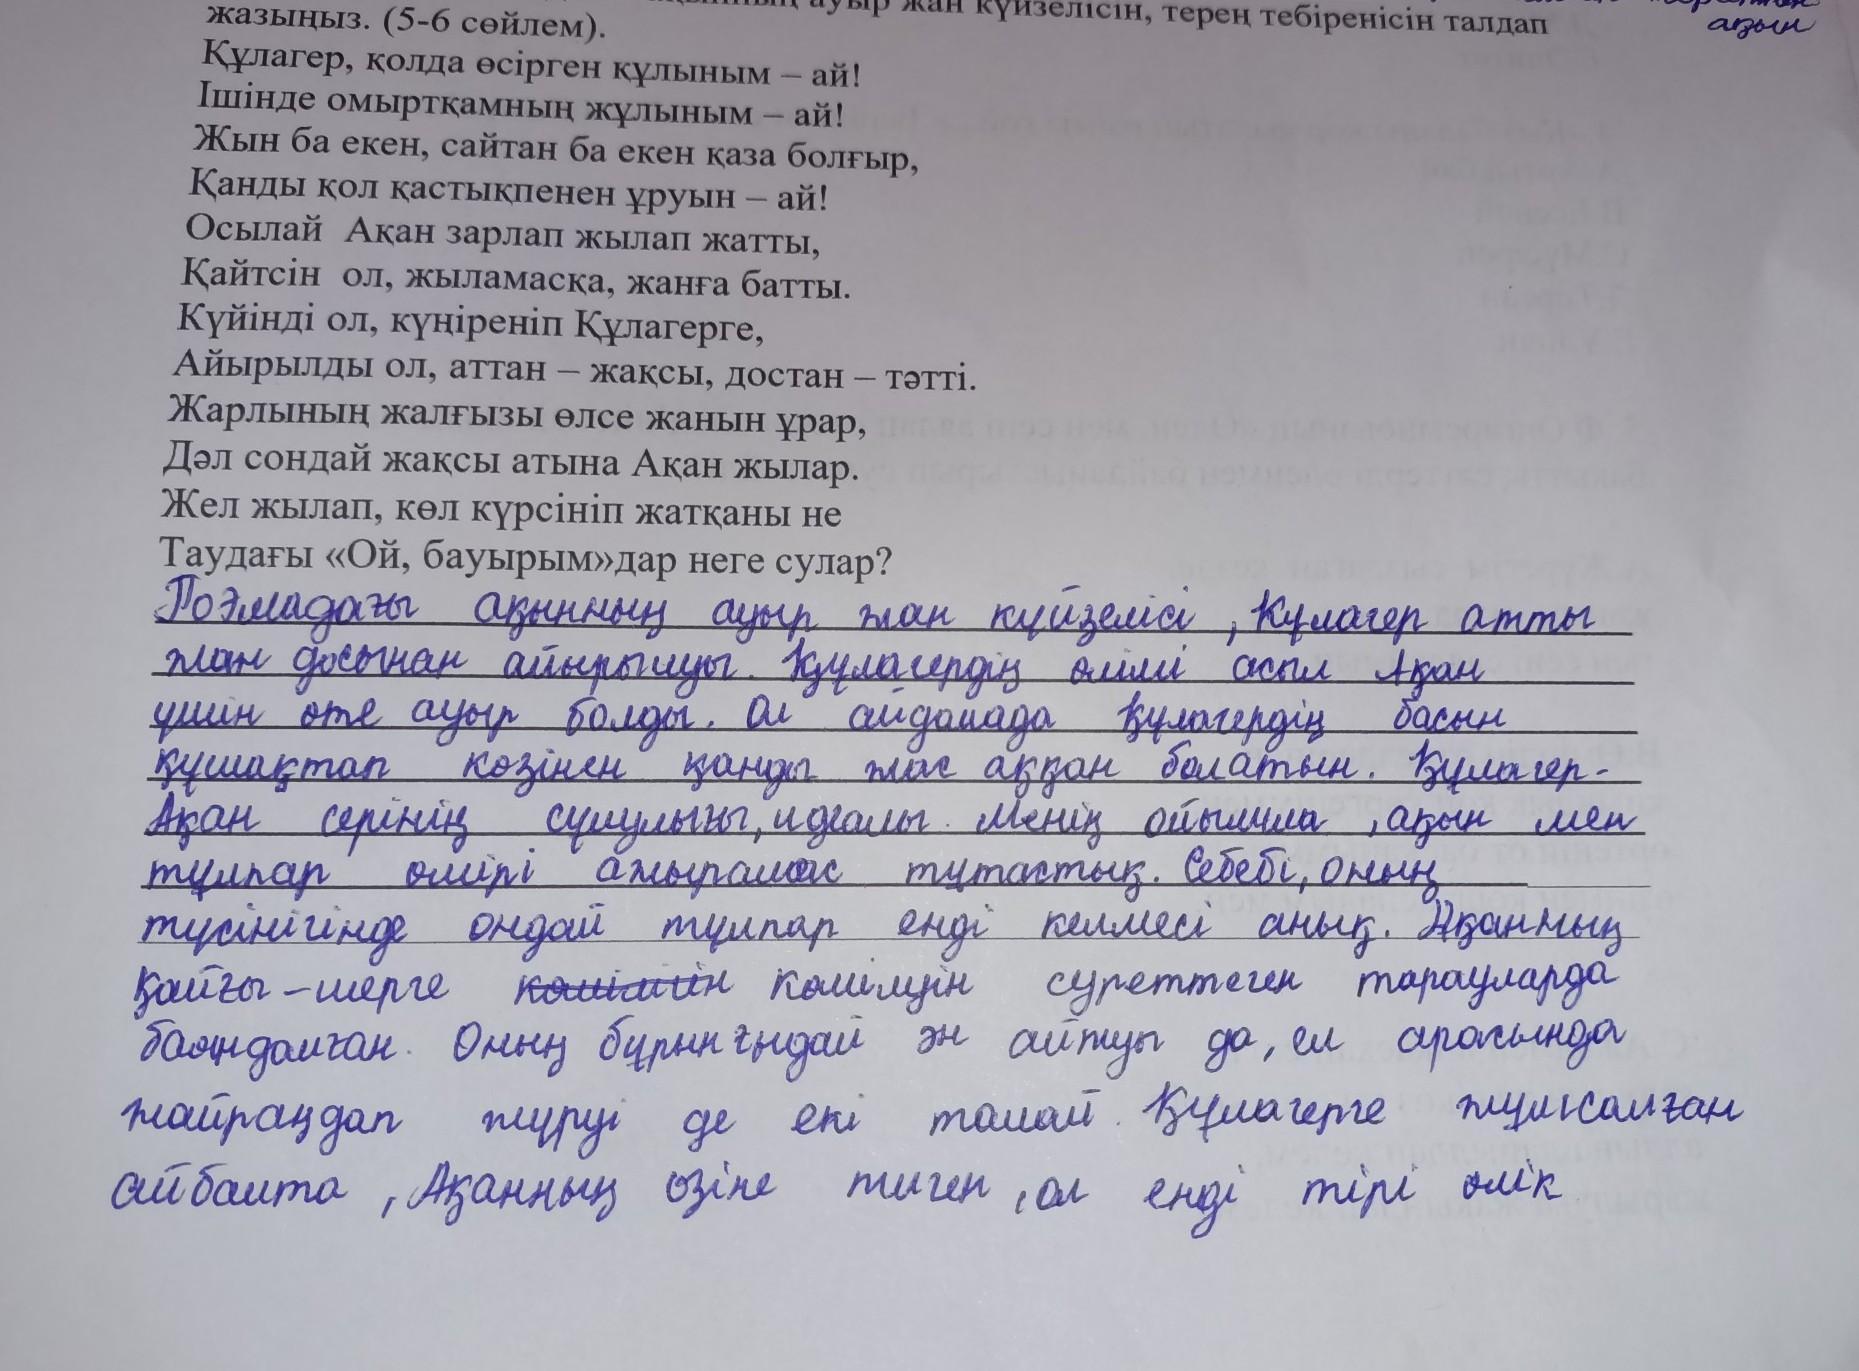 ақын
ауыр жан күйзелісін, терең тебіренісін талдап
жазыңыз. (5-6 сөйлем).
Құлагер, қолда өсірген құлыным – ай!
Ішінде омыртқамның жұлыным – ай!
Жын ба екен, сайтан ба екен қаза болғыр,
Қанды қол қастықпенен ұруын – ай!
Осылай Ақан зарлап жылап жатты,
Қайтсін ол, жыламасқа, жанға батты.
Күйінді ол, күңіреніп Құлагерге,
Айырылды ол, аттан – жақсы, достан – тәтті.
Жарлының жалғызы өлсе жанын ұрар,
Дәл сондай жақсы атына Ақан жылар.
Жел жылап, көл күрсініп жатқаны не
Таудағы «Ой, бауырым»дар неге сулар?
Поэмадағы ақынның ауыр жан күйзелісі, Құлагер атты
жан досынан айырылуы. Құлагердің өлімі асыл Ақан
үшін өте ауыр болды. Ол айдалада Құлагердің басын
құшақтап көзінен қанды жас аққан болатын. Құлагер-
Ақан серінің сұлулығы, идеалы. Менің ойымша, ақын мен
тұлпар өмірі ажырамас тұтастық. Себебі, оның
түсінігінде ондай тұлпар енді келмесі анық. Ақанның
қайғы-шерге көмілуін суреттеген тарауларда
баяндалған. Оның бұрынғыдай ән айтуы да, ел арасында
жайраңдап жүруі де екі талай. Құлагерге жұмсалған
айбалта, Ақанның өзіне тиген, ол енді тірі өлік